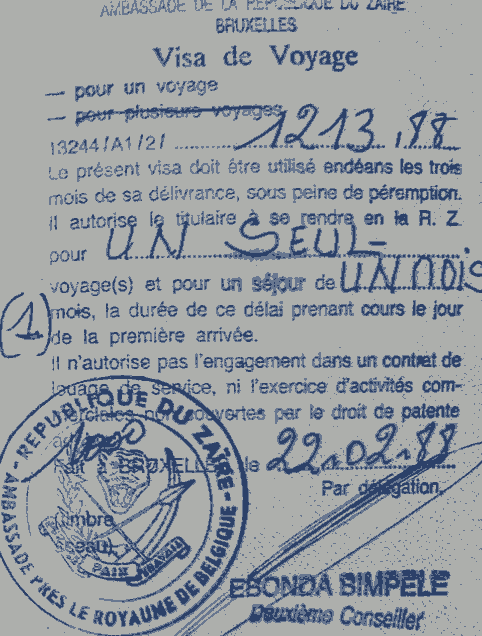 AMBASSADE DE LA REPUBLIQUE DU ZAIRE
BRUXELLES
Visa de Voyage
— pour un voyage
— pour plusieurs voyages
13244/A1/2/ 1213.88
Le présent visa doit être utilisé endéans les trois
mois de sa délivrance, sous peine de péremption.
Il autorise le titulaire à se rendre en la R. Z.
pour UN SEUL
voyage(s) et pour un séjour de UN MOIS
(1) mois, la durée de ce délai prenant cours le jour
de la première arrivée.
Il n'autorise pas l'engagement dans un contrat de
louage de service, ni l'exercice d'activités com-
merciales non couvertes par le droit de patente
Fait à BRUXELLES le 22.02.88
Par délégation,
timbre
sceau
REPUBLIQUE DU ZAÏRE
AMBASSADE PRES LE ROYAUME DE BELGIQUE
PAIX TRAVAIL
EBONDA BIMPELE
Deuxième Conseiller